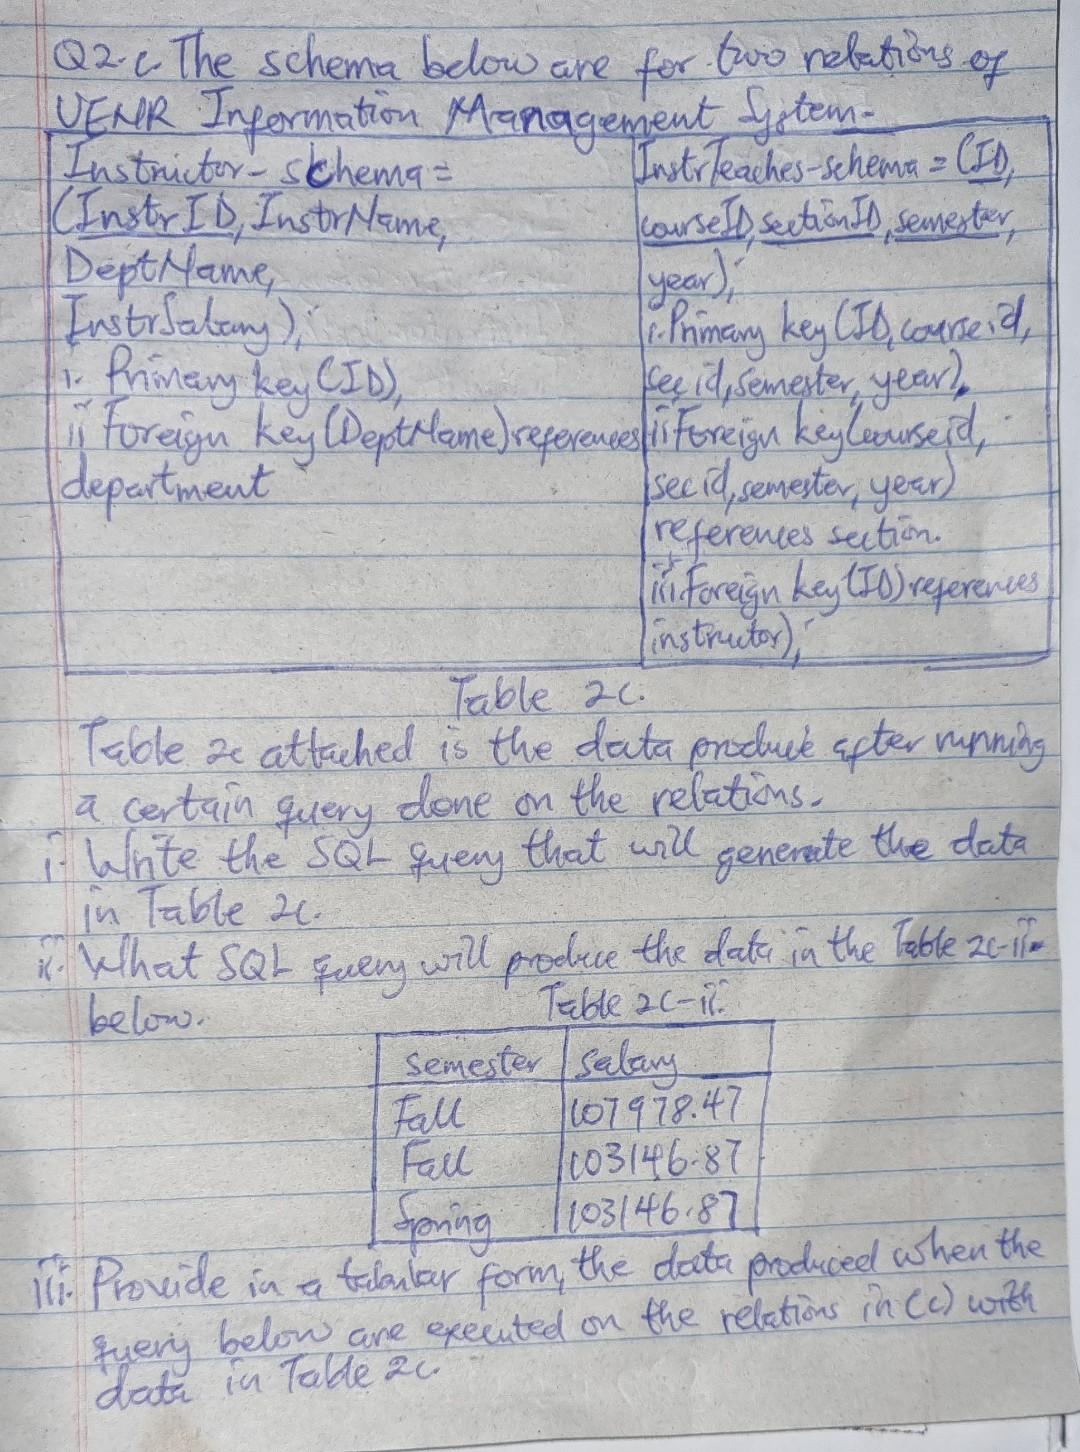 Q2.c. The schema below are for two relations of
UENR Information Management System.
Instructor-schema =
(InstrID, InstrName,
DeptName,
InstrSalary);
i. Primary key (ID),
ii Foreign key (DeptName) references
department
InstrTeaches-schema = (ID,
courseID, sectionID, semester,
year);
i. Primary key (ID, course id,
sec id, semester, year).
ii Foreign key (course id,
sec id, semester, year)
references section.
iii. Foreign key (ID) references
instructor);
Table 2c.
Table 2c attached is the data produce after running
a certain query done on the relations.
i. Write the SQL query that will generate the data
in Table 2c.
ii. What SQL query will produce the data in the Table 2c-ii
below.
Table 2c-ii.
semester salary
Fall 107978.47
Fall 103146.87
Spring 103146.87
iii. Provide in a tabular form, the data produced when the
query below are executed on the relations in (c) with
data in Table 2c.